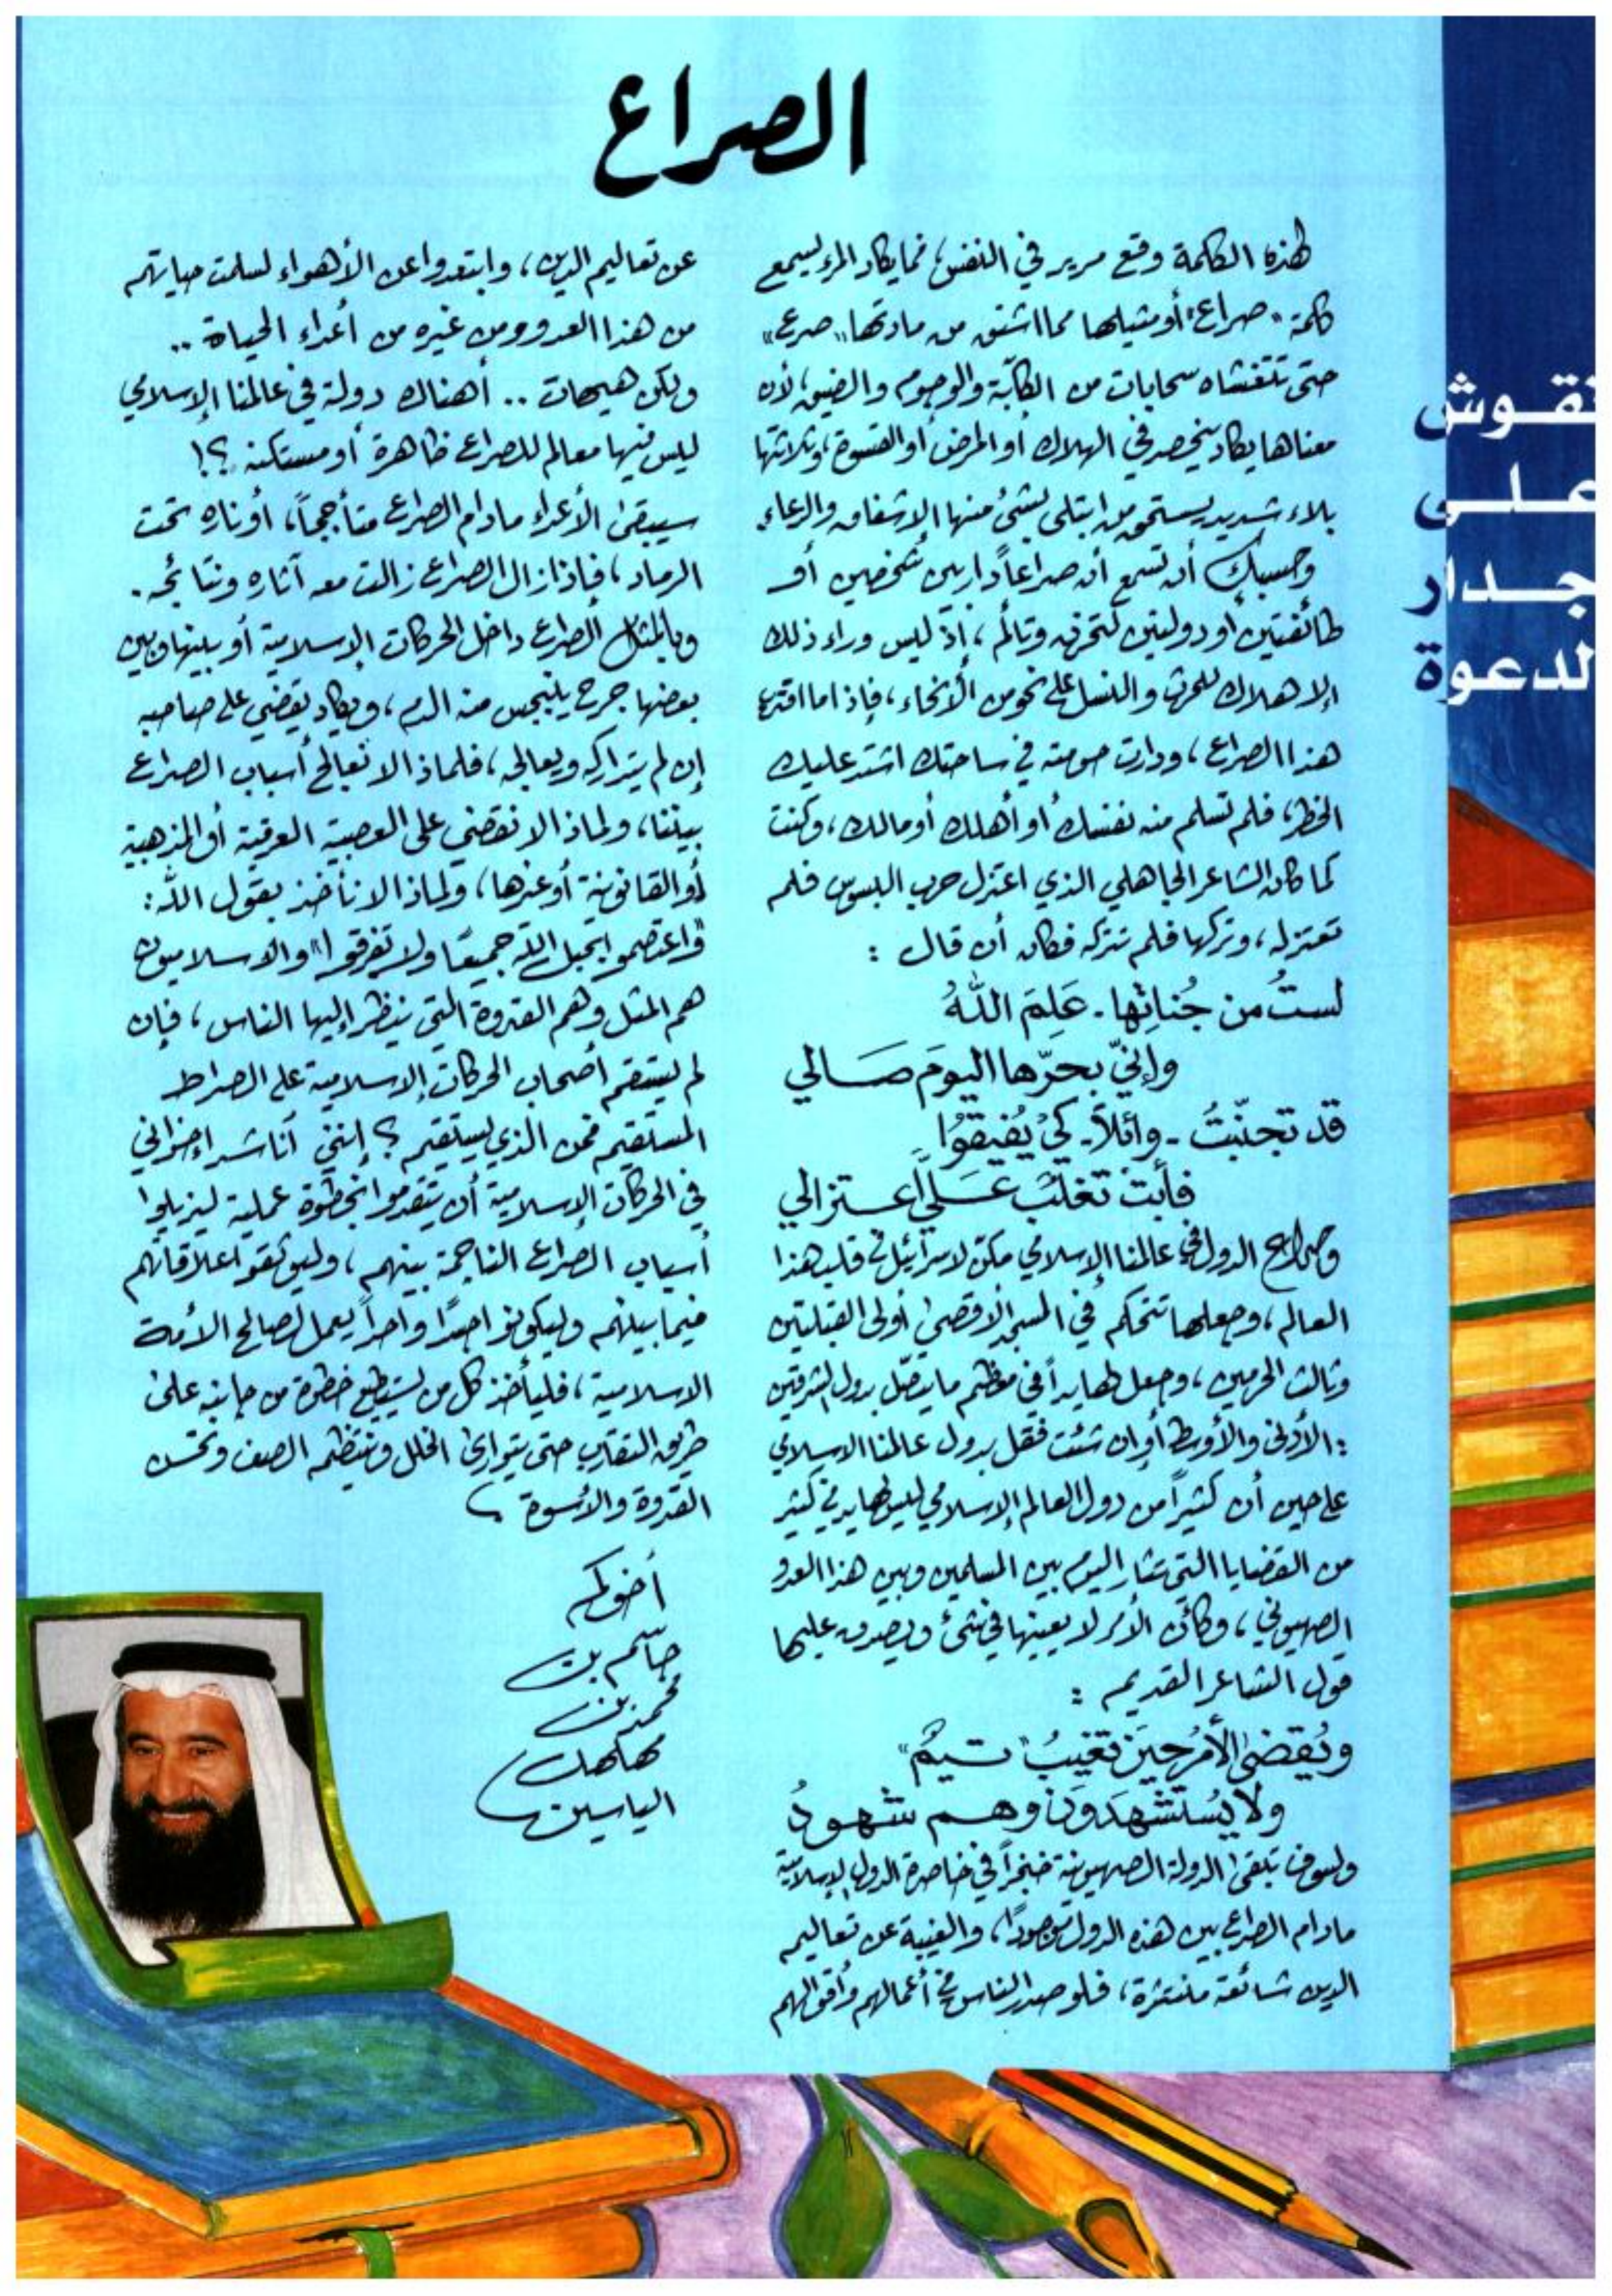 الصراع
نقوش
على
جدار
الدعوة
لهذه الكلمة وقع مرير في النفس، فما يكاد المرء يسمع
كلمة "صراع" أو مثيلها مما اشتق من مادتها "صرع"
حتى تتغشاه سحابات من الكآبة والوجوم والضيق، لأن
معناها يكاد ينحصر في الهلاك أو المرض أو القسوة، وثلاثتها
بلاء شديد يستحق من ابتلي بشئ منها الإشفاق والدعاء.
وحسبك أن تسمع أن صراعاً دار بين شخصين أو
طائفتين أو دولتين لتحزن وتألم، إذ ليس وراء ذلك
إلا هلاك للحرث والنسل على نحو من الأنحاء، فإذا ما اقترع
هذا الصراع، ودارت حومته في ساحتك اشتد عليك
الخطر، فلم تسلم منه نفسك أو أهلك أو مالك، وكنت
كما كان الشاعر الجاهلي الذي اعتزل حرب البسوس فلم
تعتزله، وتركها فلم تتركه فكان أن قال :
لستُ من جُناتِها - عَلِمَ اللهُ
وإنّي بحرّها اليومَ صَالي
قد تجنّبتُ - وائلاً - كيْ يُفيقُوا
فأبتْ تغلبُ عَليَّ اعتزالي
وصراع الدول في عالمنا الإسلامي مكّن لاسرائيل في قلب هذا
العالم، وجعلها تتحكم في المسجد الأقصى أولى القبلتين
وثالث الحرمين، وجعل لها يداً في معظم ما يتصّل بدول الشرقين
: الأدنى والأوسط أو إن شئت فقل بدول عالمنا الاسلامي
على حين أن كثيراً من دول العالم الإسلامي ليس لها يد في كثير
من القضايا التي تثار اليوم بين المسلمين وبين هذا العدو
الصهيوني، وكأن الأمر لا يعنيها في شئ ويصدق عليها
قول الشاعر القديم :
ويُقضى الأمرُ حينَ تغيبُ "تيمٌ"
ولا يُستشهدَونَ وهم شهودُ
ولسوف تبقى الدولة الصهيونية خنجراً في خاصرة الدول الإسلامية
مادام الصراع بين هذه الدول موجودًا، والغيبة عن تعاليم
الدين شائعة منتشرة، فلو صدر الناس في أعمالهم وأقوالهم
عن تعاليم الدين، وابتعدوا عن الأهواء لسلمت حياتهم
من هذا العدو ومن غيره من أعداء الحياة ..
ولكن هيهات .. أهناك دولة في عالمنا الإسلامي
ليس فيها معالم للصراع ظاهرة أو مستكنة ؟!
سيبقى الأعداء مادام الصراع متأججاً، أو ناره تحت
الرماد، فإذا زال الصراع زالت معه آثاره ونتائجه.
وبالمثل الصراع داخل الحركات الإسلامية أو بينها وبين
بعضها جرح ينبجس منه الدم، ويكاد يقضي على صاحبه
إن لم يتداركه ويعالجه، فلماذا لا نعالج أسباب الصراع
بيننا، ولماذا لا نقضي على العصبية العرقية أو المذهبية
أو القانونية أو غيرها، ولماذا لا نأخذ بقول الله :
"واعتصموا بحبل الله جميعًا ولا تفرقوا" والاسلاميون
هم المثل وهم القدوة التي ينظر إليها الناس، فإن
لم يستقم أصحاب الحركات الإسلامية على الصراط
المستقيم فمن الذي يستقيم ؟ إنني أناشد إخواني
في الحركات الإسلامية أن يتقدموا بخطوة عملية ليزيلوا
أسباب الصراع الناجمة بينهم، وليوثقوا علاقاتهم
فيما بينهم وليكونوا جسدًا واحداً يعمل لصالح الأمة
الاسلامية، فليأخذ كل من يستطيع خطوة من جانبه على
طريق التقارب حتى يتوارى الخلل وينتظم الصف وتحسن
القدوة والأسوة
أخوكم
جاسم بن
محمد بن
مهلهل
الياسين